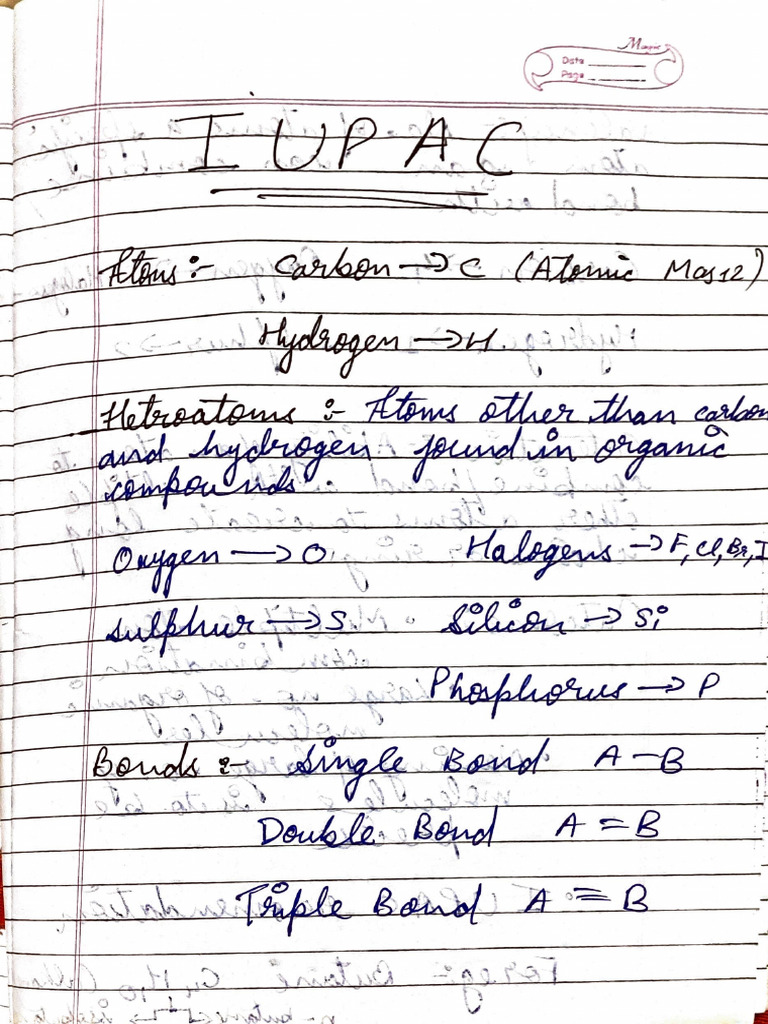 Magic
Date
Page
IUPAC
Atoms :- Carbon → C (Atomic Mas 12)
Hydrogen → H.
Hetroatoms :- Atoms other than carbon
and hydrogen found in organic
compounds.
Oxygen → O Halogens → F, Cl, Br, I
Sulphur → S. Silicon → Si
Phosphorus → P
Bonds :- Single Bond A – B
Double Bond A = B
Triple Bond A ≡ B